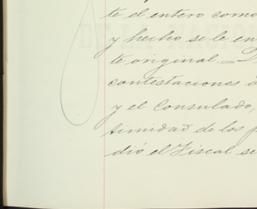 te el entero como
y hecho se le en
te original.—
contestaciones
y el Consulado,
timidad de los p
dió el Fiscal se